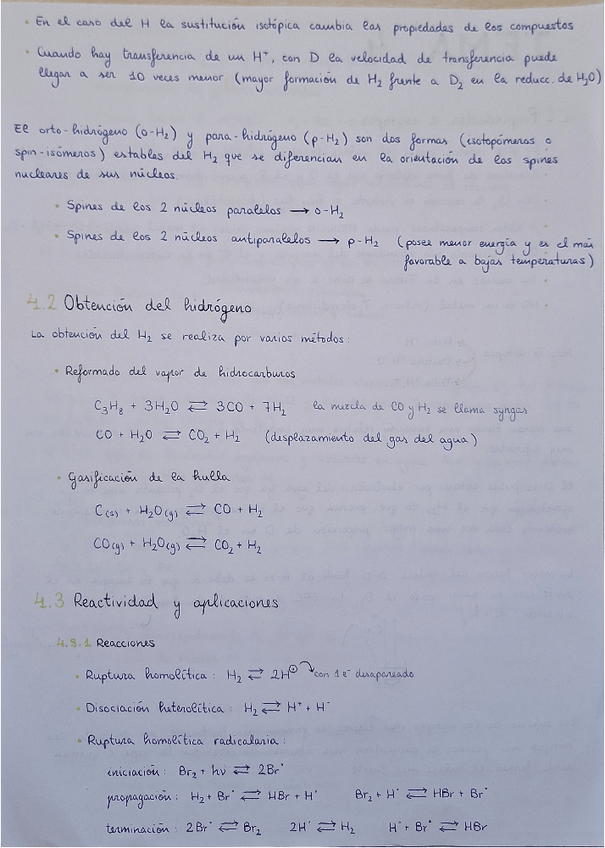 • En el caso del H la sustitución isotópica cambia las propiedades de los compuestos
• Cuando hay transferencia de un H⁺, con D la velocidad de transferencia puede
llegar a ser 10 veces menor (mayor formación de H₂ frente a D₂ en la reducc. de H₂O)
El orto-hidrógeno (o-H₂) y para-hidrógeno (p-H₂) son dos formas (isotopómeros o
spin-isómeros) estables del H₂ que se diferencian en la orientación de los spines
nucleares de sus núcleos.
• Spines de los 2 núcleos paralelos → o-H₂
• Spines de los 2 núcleos antiparalelos → p-H₂ (posee menor energía y es el más
favorable a bajas temperaturas)
4.2 Obtención del hidrógeno
La obtención del H₂ se realiza por varios métodos:
• Reformado del vapor de hidrocarburos
C₃H₈ + 3H₂O ⇄ 3CO + 7H₂ la mezcla de CO y H₂ se llama syngas
CO + H₂O ⇄ CO₂ + H₂ (desplazamiento del gas del agua)
• Gasificación de la hulla
C(s) + H₂O(g) ⇄ CO + H₂
CO(g) + H₂O(g) ⇄ CO₂ + H₂
4.3 Reactividad y aplicaciones
4.3.1 Reacciones
• Ruptura homolítica: H₂ ⇄ 2H· con 1 e⁻ desapareado
• Disociación heterolítica: H₂ ⇄ H⁺ + H⁻
• Ruptura homolítica radicalaria:
iniciación: Br₂ + hν ⇄ 2Br·
propagación: H₂ + Br· ⇄ HBr + H· Br₂ + H· ⇄ HBr + Br·
terminación: 2Br· ⇄ Br₂ 2H· ⇄ H₂ H· + Br· ⇄ HBr